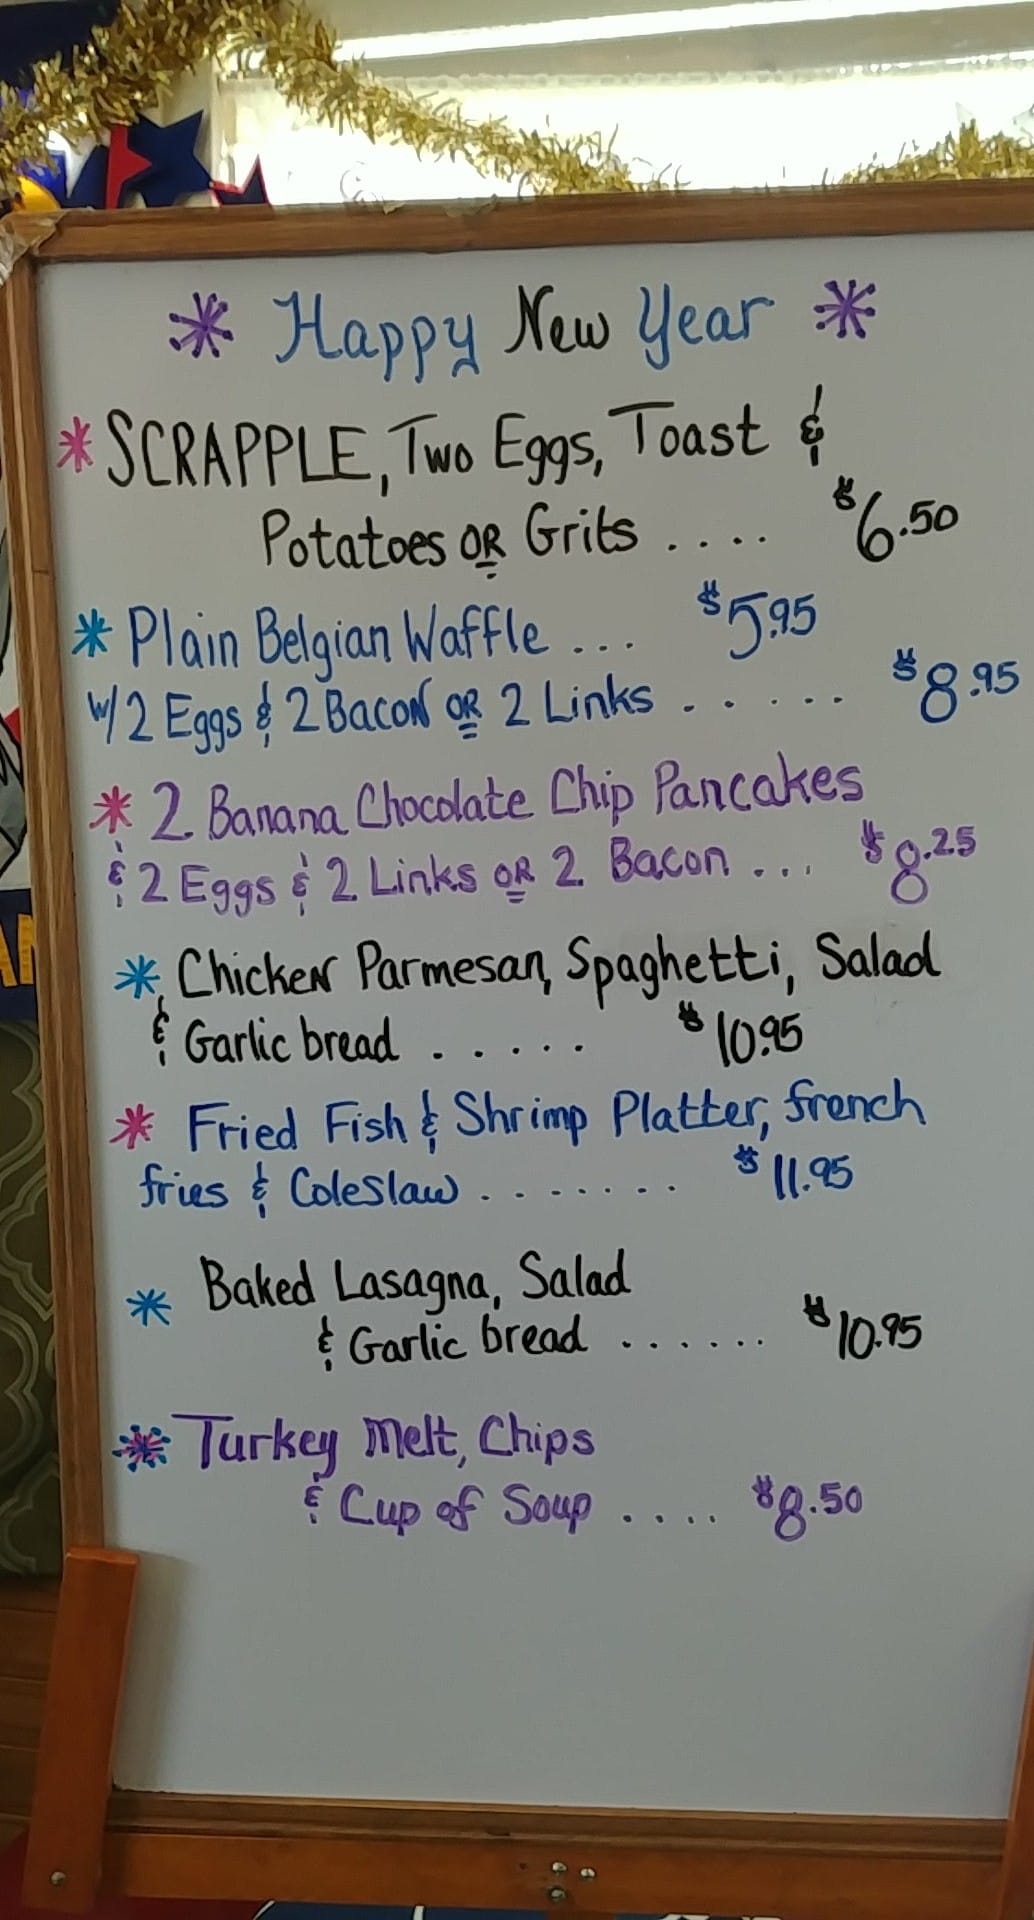 Happy New Year
SCRAPPLE, Two Eggs, Toast &
Potatoes OR Grits .... $6.50
Plain Belgian Waffle ... $5.95
w/ 2 Eggs & 2 Bacon OR 2 Links ...... $8.95
2 Banana Chocolate Chip Pancakes
& 2 Eggs & 2 Links OR 2 Bacon ... $8.25
Chicken Parmesan, Spaghetti, Salad
& Garlic bread ..... $10.95
Fried Fish & Shrimp Platter, french
fries & Coleslaw ....... $11.95
Baked Lasagna, Salad
& Garlic bread ...... $10.95
Turkey Melt, Chips
& Cup of Soup .... $8.50